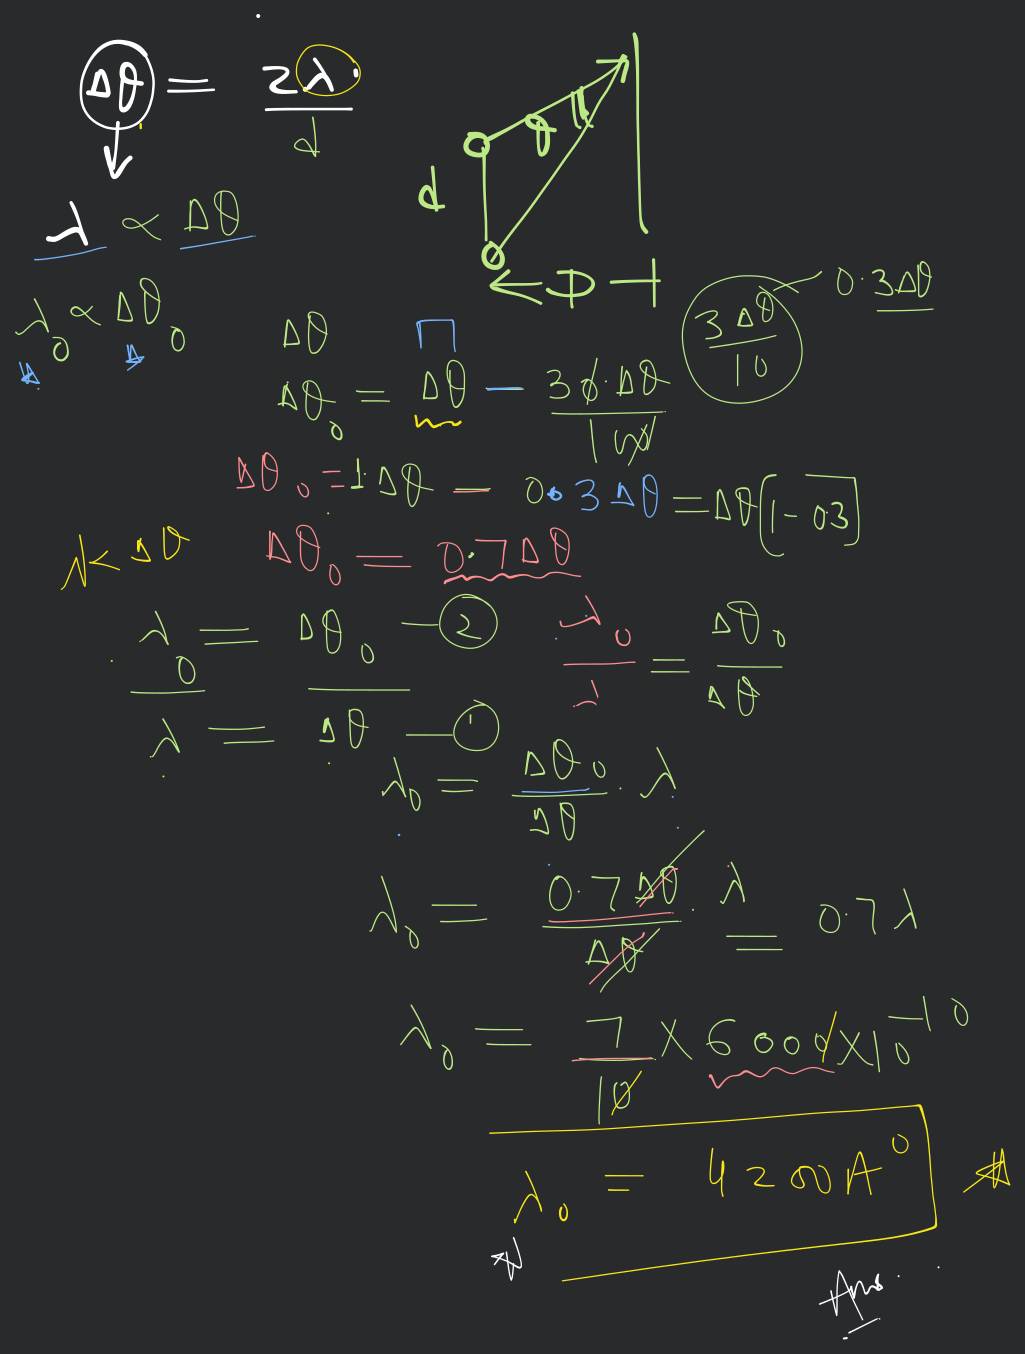 Δθ = 2λ / d
d
θ
D
λ ∝ Δθ
λ₀ ∝ Δθ₀
Δθ
3Δθ / 10
0.3Δθ
Δθ₀ = Δθ - 30.Δθ / 100
Δθ₀ = 1.Δθ - 0.3Δθ = Δθ[1-0.3]
Δθ₀ = 0.7Δθ
λ₀ = Δθ₀ - ②
λ = Δθ - ①
λ₀ / λ = Δθ₀ / Δθ
λ₀ = Δθ₀ / Δθ . λ
λ₀ = 0.7Δθ / Δθ . λ = 0.7λ
λ₀ = 7 / 10 × 6000 × 10⁻¹⁰
λ₀ = 4200A⁰
Ans.